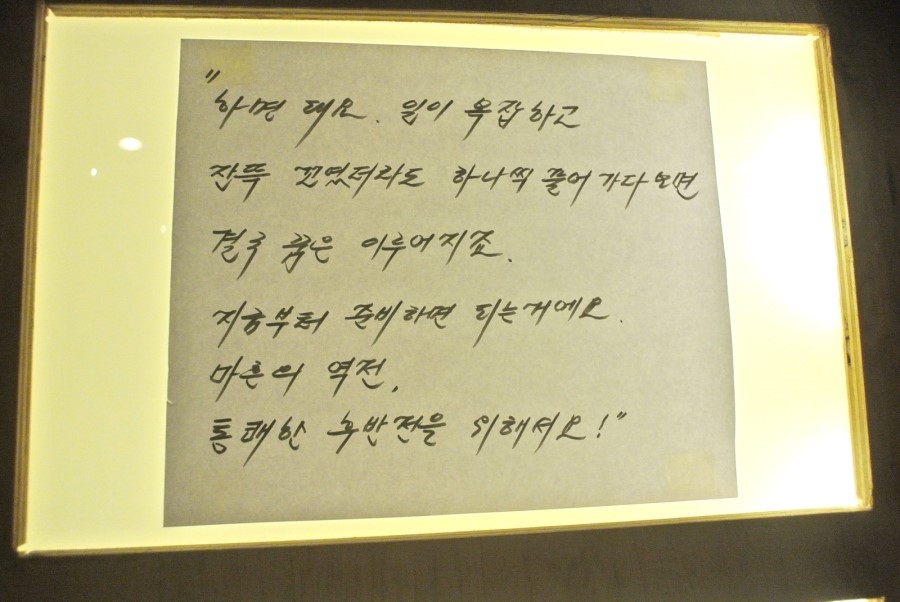 "하면 돼요. 일이 복잡하고
잔뜩 꼬였더라도 하나씩 풀어가다보면
결국 꿈은 이루어지죠.
지금부터 준비하면 되는거에요.
마흔의 역전,
통쾌한 후반전을 위해서요!"